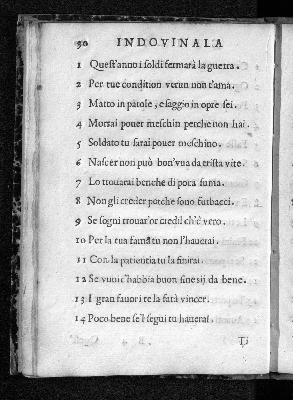 90 INDOVINALA
1 Quest'anno i soldi fermarà la guerra.
2 Per tue condition verun non t'ama.
3 Matto in parole, e saggio in opre sei.
4 Morrai pouer meschin perche non hai.
5 Soldato tu sarai pouer meschino.
6 Nascer non può bon'vua da trista vite.
7 Lo trouarai benche di poca fama.
8 Non gli creder perche sono furbacci.
9 Se sogni trouar'or credil ch'è vero.
10 Per la tua fama tu non l'hauerai.
11 Con la patientia tu la finirai.
12 Se vuoi c'habbia buon fine sij da bene.
13 I gran fauori te la farà vincer.
14 Poco bene se'l segui tu hauerai.
Ti